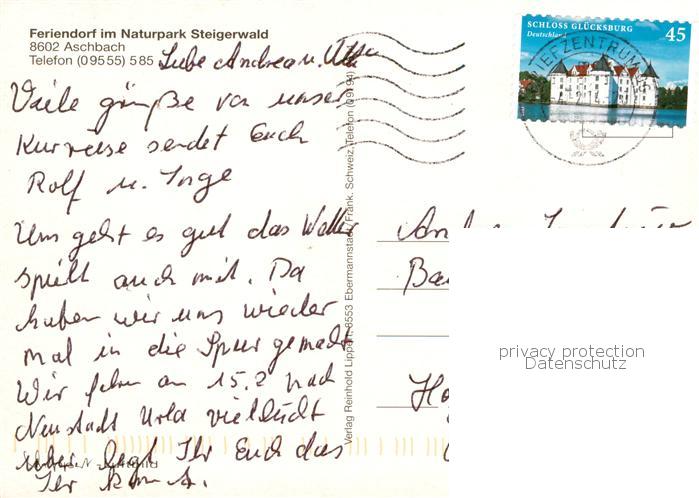 Feriendorf im Naturpark Steigerwald
8602 Aschbach
Telefon (0 95 55) 5 85
Liebe Andrea u.
Viele grüße von unser
Kurreise sendet Euch
Rolf u. Inge
Uns geht es gut das Wetter
spielt auch mit. Da
haben wir uns wieder
mal in die Spur gemacht
Wir fahren am 15.2 nach
Neustadt Orla vielleicht
über legt Ihr Euch das
Ihr kommt.
Verlag Reinhold Lippert, 8553 Ebermannstadt/Fränk. Schweiz, Telefon (09194)
SCHLOSS GLÜCKSBURG
Deutschland
45
BRIEFZENTRUM
privacy protection
Datenschutz